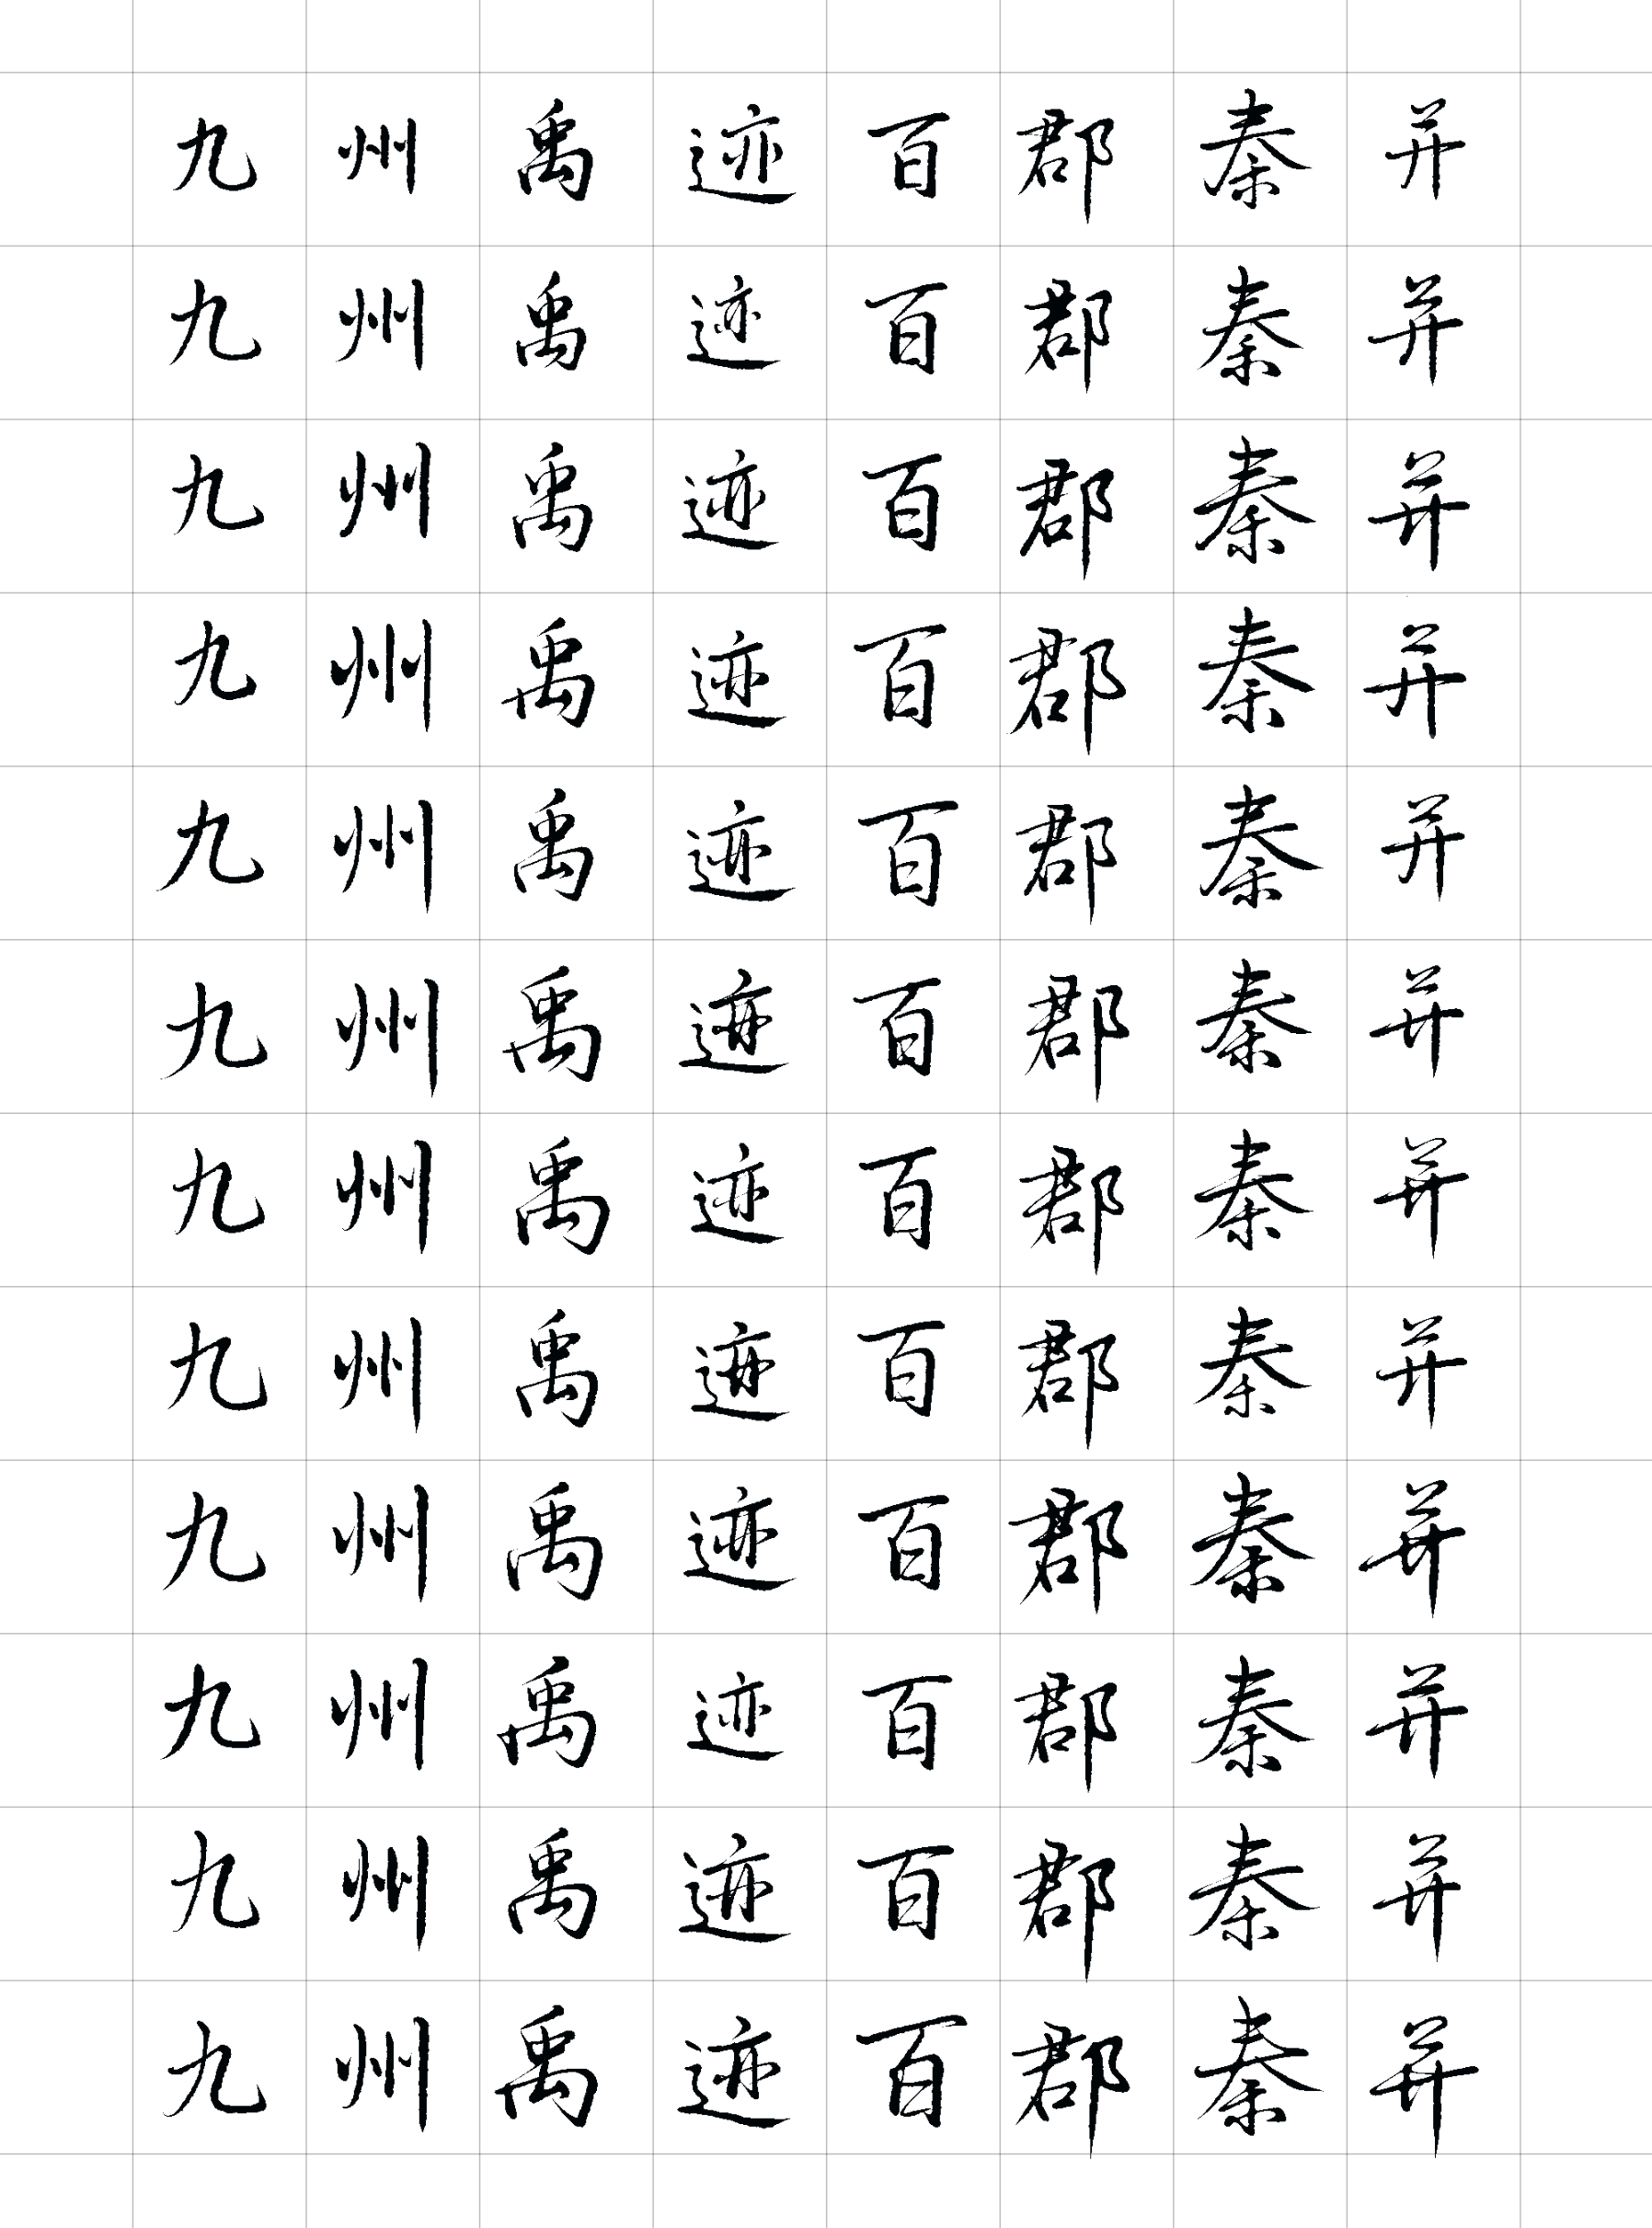 九州禹迹百郡秦并
九州禹迹百郡秦并
九州禹迹百郡秦并
九州禹迹百郡秦并
九州禹迹百郡秦并
九州禹迹百郡秦并
九州禹迹百郡秦并
九州禹迹百郡秦并
九州禹迹百郡秦并
九州禹迹百郡秦并
九州禹迹百郡秦并
九州禹迹百郡秦并